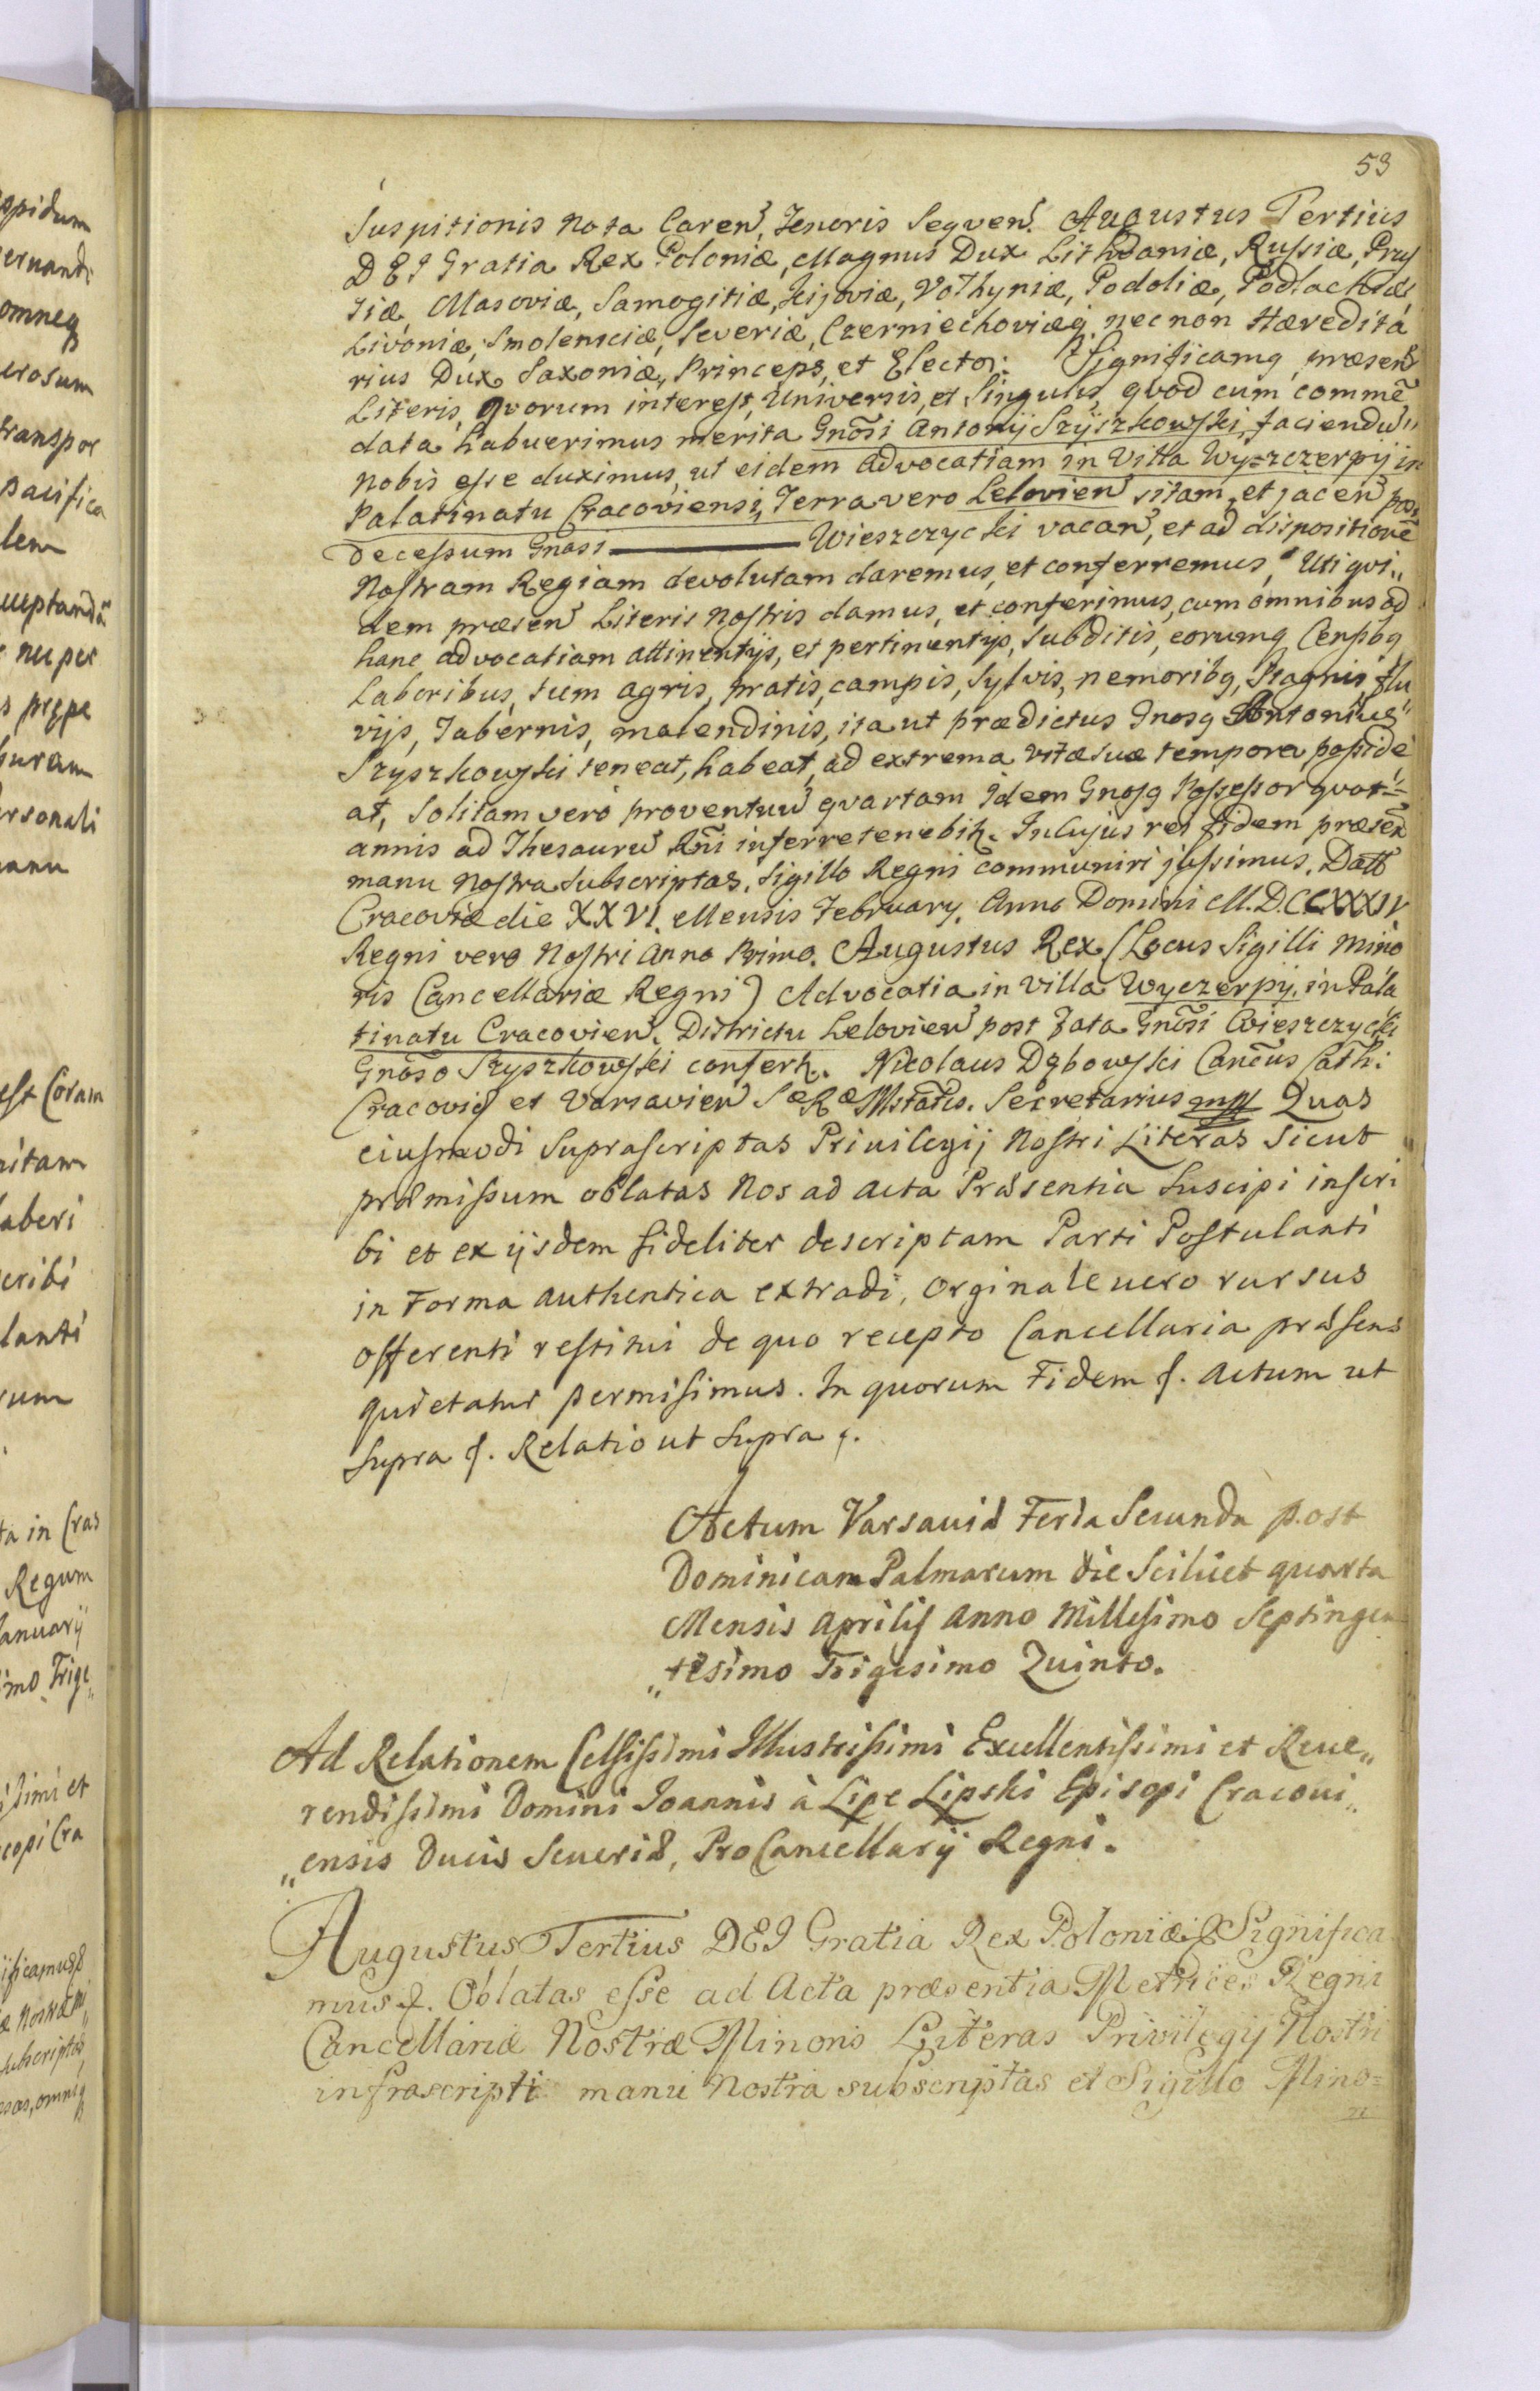 53
Suspitionis nota Careñ, Tenoris Segveñ. Augustus Tertius
DEI Gratia Rex Poloniæ, Magnus Dux Lithvaniæ, Russiæ, Prus
siæ, Masoviæ, Samogitiæ, Kijoviæ, Volhyniæ, Podoliæ, Podlachiæ,
Livoniæ, Smolensciæ, Severiæ, Czerniechoviæq, nec non Hæredita
rius Dux Saxoniæ, Princeps, et Elector. Significamq præseñ
Literis, qvorum interest, Universis, et Singulis, qvod cum commē
data habuerimus merita Gnōsi Antonij Szyszkowski, faciendū
nobis esse duximus, ut eidem advocatiam in Villa Wyszczerpij in
Palatinatu Cracoviensi, Terra vero Leloviеñ sitam, et jaceñ post
decessum Gnosi ——— Wieszczycki vacañ, et ad dispositionē
Nostram Regiam devolutam daremus, et conferremus, Uti qvi„
dem præseñ Literis Nostris damus, et conferimus, cum omnibus ad
hanc advocatiam attinentijs, et pertinentijs, subditis, eorumq Censibq
Laboribus, tum agris, pratis, campis, sylvis, nemoribq, Stagnis, flu
vijs, Tabernis, molendinis, ita ut prædictus Gnosq Antonius
Szyszkowski teneat, habeat, ad extrema vitæ suæ tempora posside
at, Solitam verò proventuū qvartam Idem Gnosq Possessor qvot=
annis ad Thesaurū Rñi inferre tenebitr. In cujus rei fidem præseñ
manu Nostra subscriptas, Sigillo Regni communiri jussimus. Datt
Cracoviæ die XXVI. Mensis February. Anno Domini M.D.CCXXXIV
Regni vero Nostri Anno Primo. Augustus Rex. (Locus Sigilli Mino
ris Cancellariæ Regni) Advocatia in Villa Wyczerpij. in Pala
tinatu Cracovieñ. Districtu Lelovieñ post fata Gnōsi Wieszczycki
Gnōso Szyszkowski confert. Nicolaus Dębowski Cancus Cath:
Cracoviẽ et Varsavieñ SæRæMstatis. Secretarius mpp Quas
eiusmodi Suprascriptas Priuilegij Nostri Literas sicut
præmissum oblatas Nos ad acta Præsentia Suscipi inscri
bi et ex ijsdem fideliter descriptam Parti Postulanti
in Forma authentica extradi, orginale uero rursus
offerenti restitui de quo recepto Cancellaria præsens
quietatur permisimus. In quorum Fidem &. Actum ut
Supra &. Relatio ut Supra &.
Actum Varsauiæ Feria Secunda post
Dominicam Palmarum die Scilicet quarta
Mensis Aprilis Anno Millesimo Septingen
„tesimo Trigesimo Quinto.
Ad Relationem Celsissimi Illustrissimi Excellentissimi et Reue„
rendissimi Domini Ioannis à Lipe Lipski Episcpi Cracoui„
„ensis Ducis Seueriæ, ProCancellarij Regni.
Augustus Tertius DEI Gratia Rex Poloniæ & Significa
mus &. Oblatas esse ad Acta præsentia Metrices Regni
Cancellariæ Nostræ Minoris Literas Privilegij Nostri
infrascripti manu Nostra subscriptas et Sigillo Mino=
ri